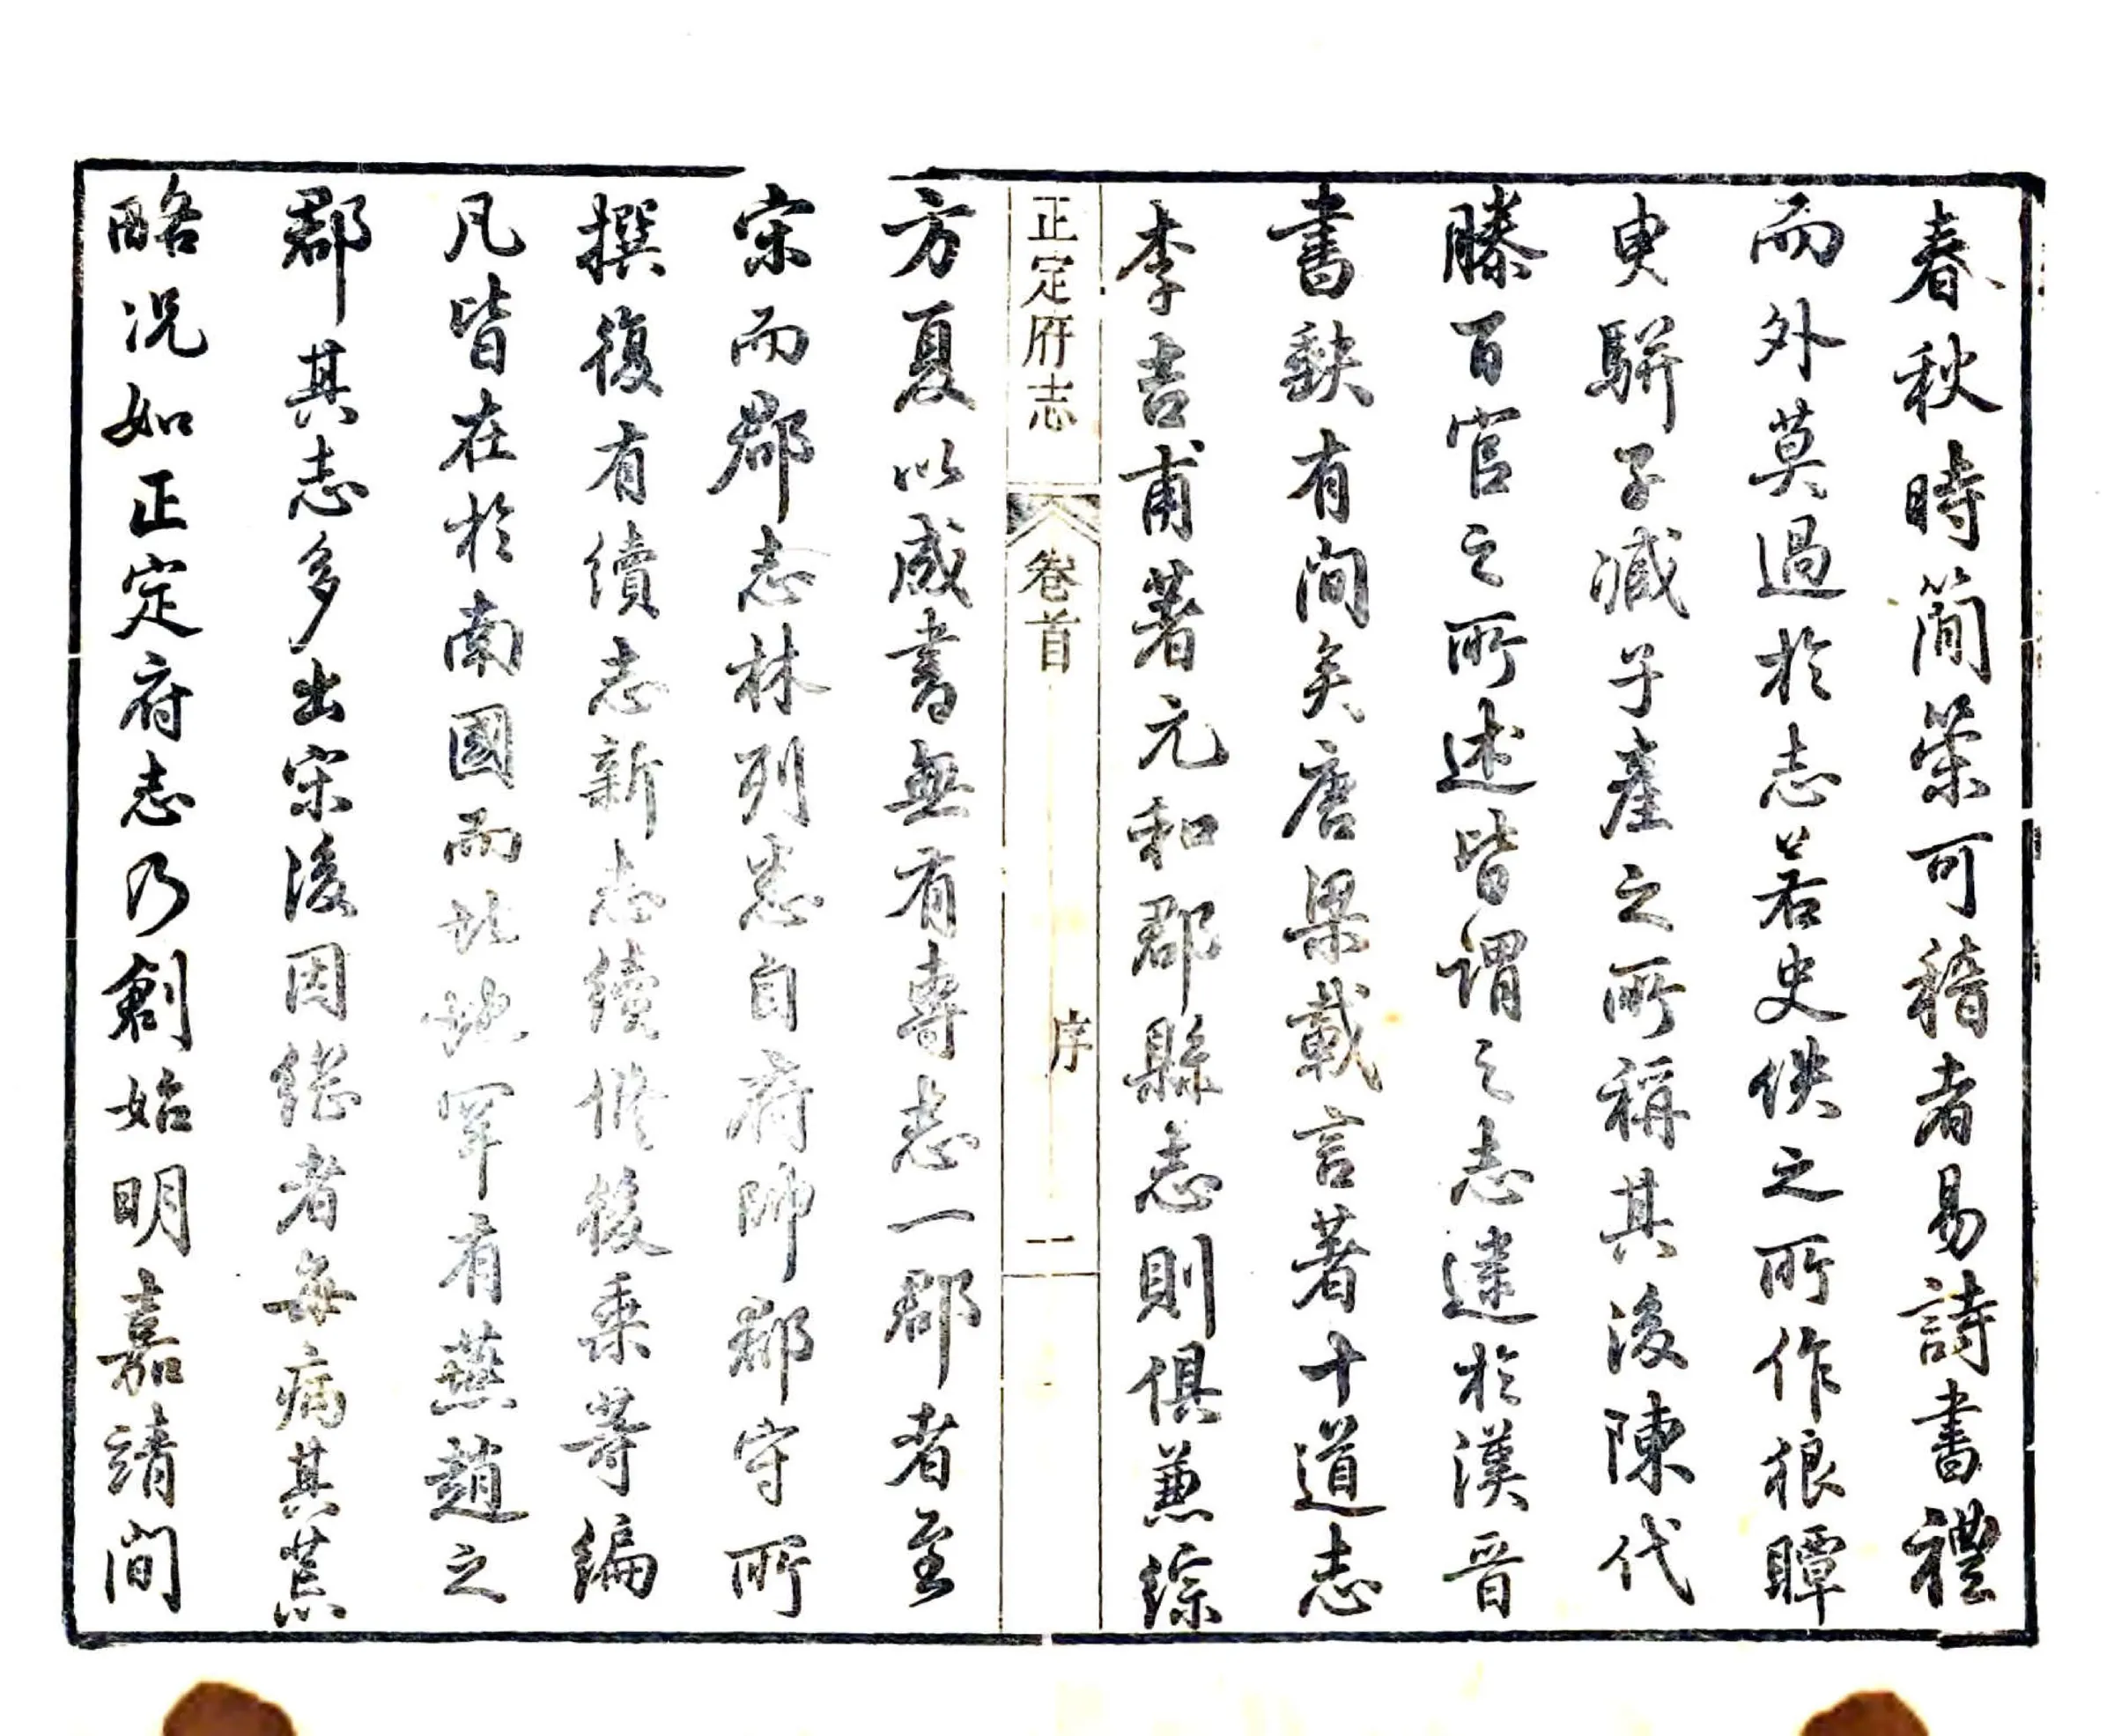 春秋時簡策可稽者易詩書禮
而外莫過於志若史佚之所作狼瞫
臾駢子臧子產之所稱其後陳代
滕百官之所述皆謂之志逮於漢晉
書缺有間矣唐梁載言著十道志
李吉甫著元和郡縣志則俱兼綜
正定府志
卷首
序
二
方夏以成書無有專志一郡者至
宋而郡志林列悉自府帥郡守所
撰復有續志新志續修後乘等編
凡皆在於南國而北地罕有燕趙之
郡其志多出宋後因繼者每病其荒
略況如正定府志乃創始明嘉靖間